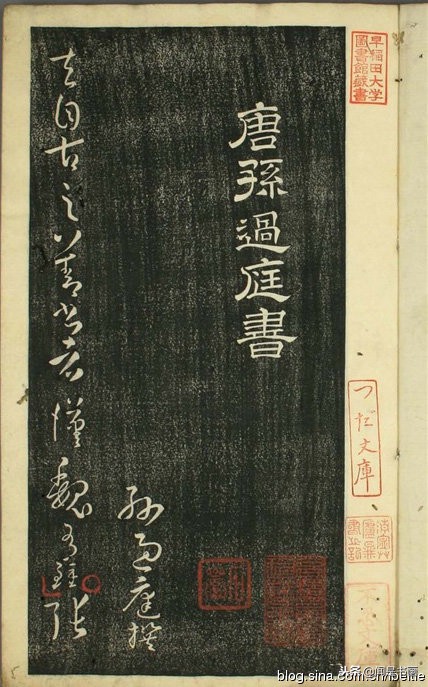 早稲田大学
圖書館蔵書
つだ文庫
唐孫過庭書
孫過庭撰
夫自古之善書者漢魏有鍾張
头条